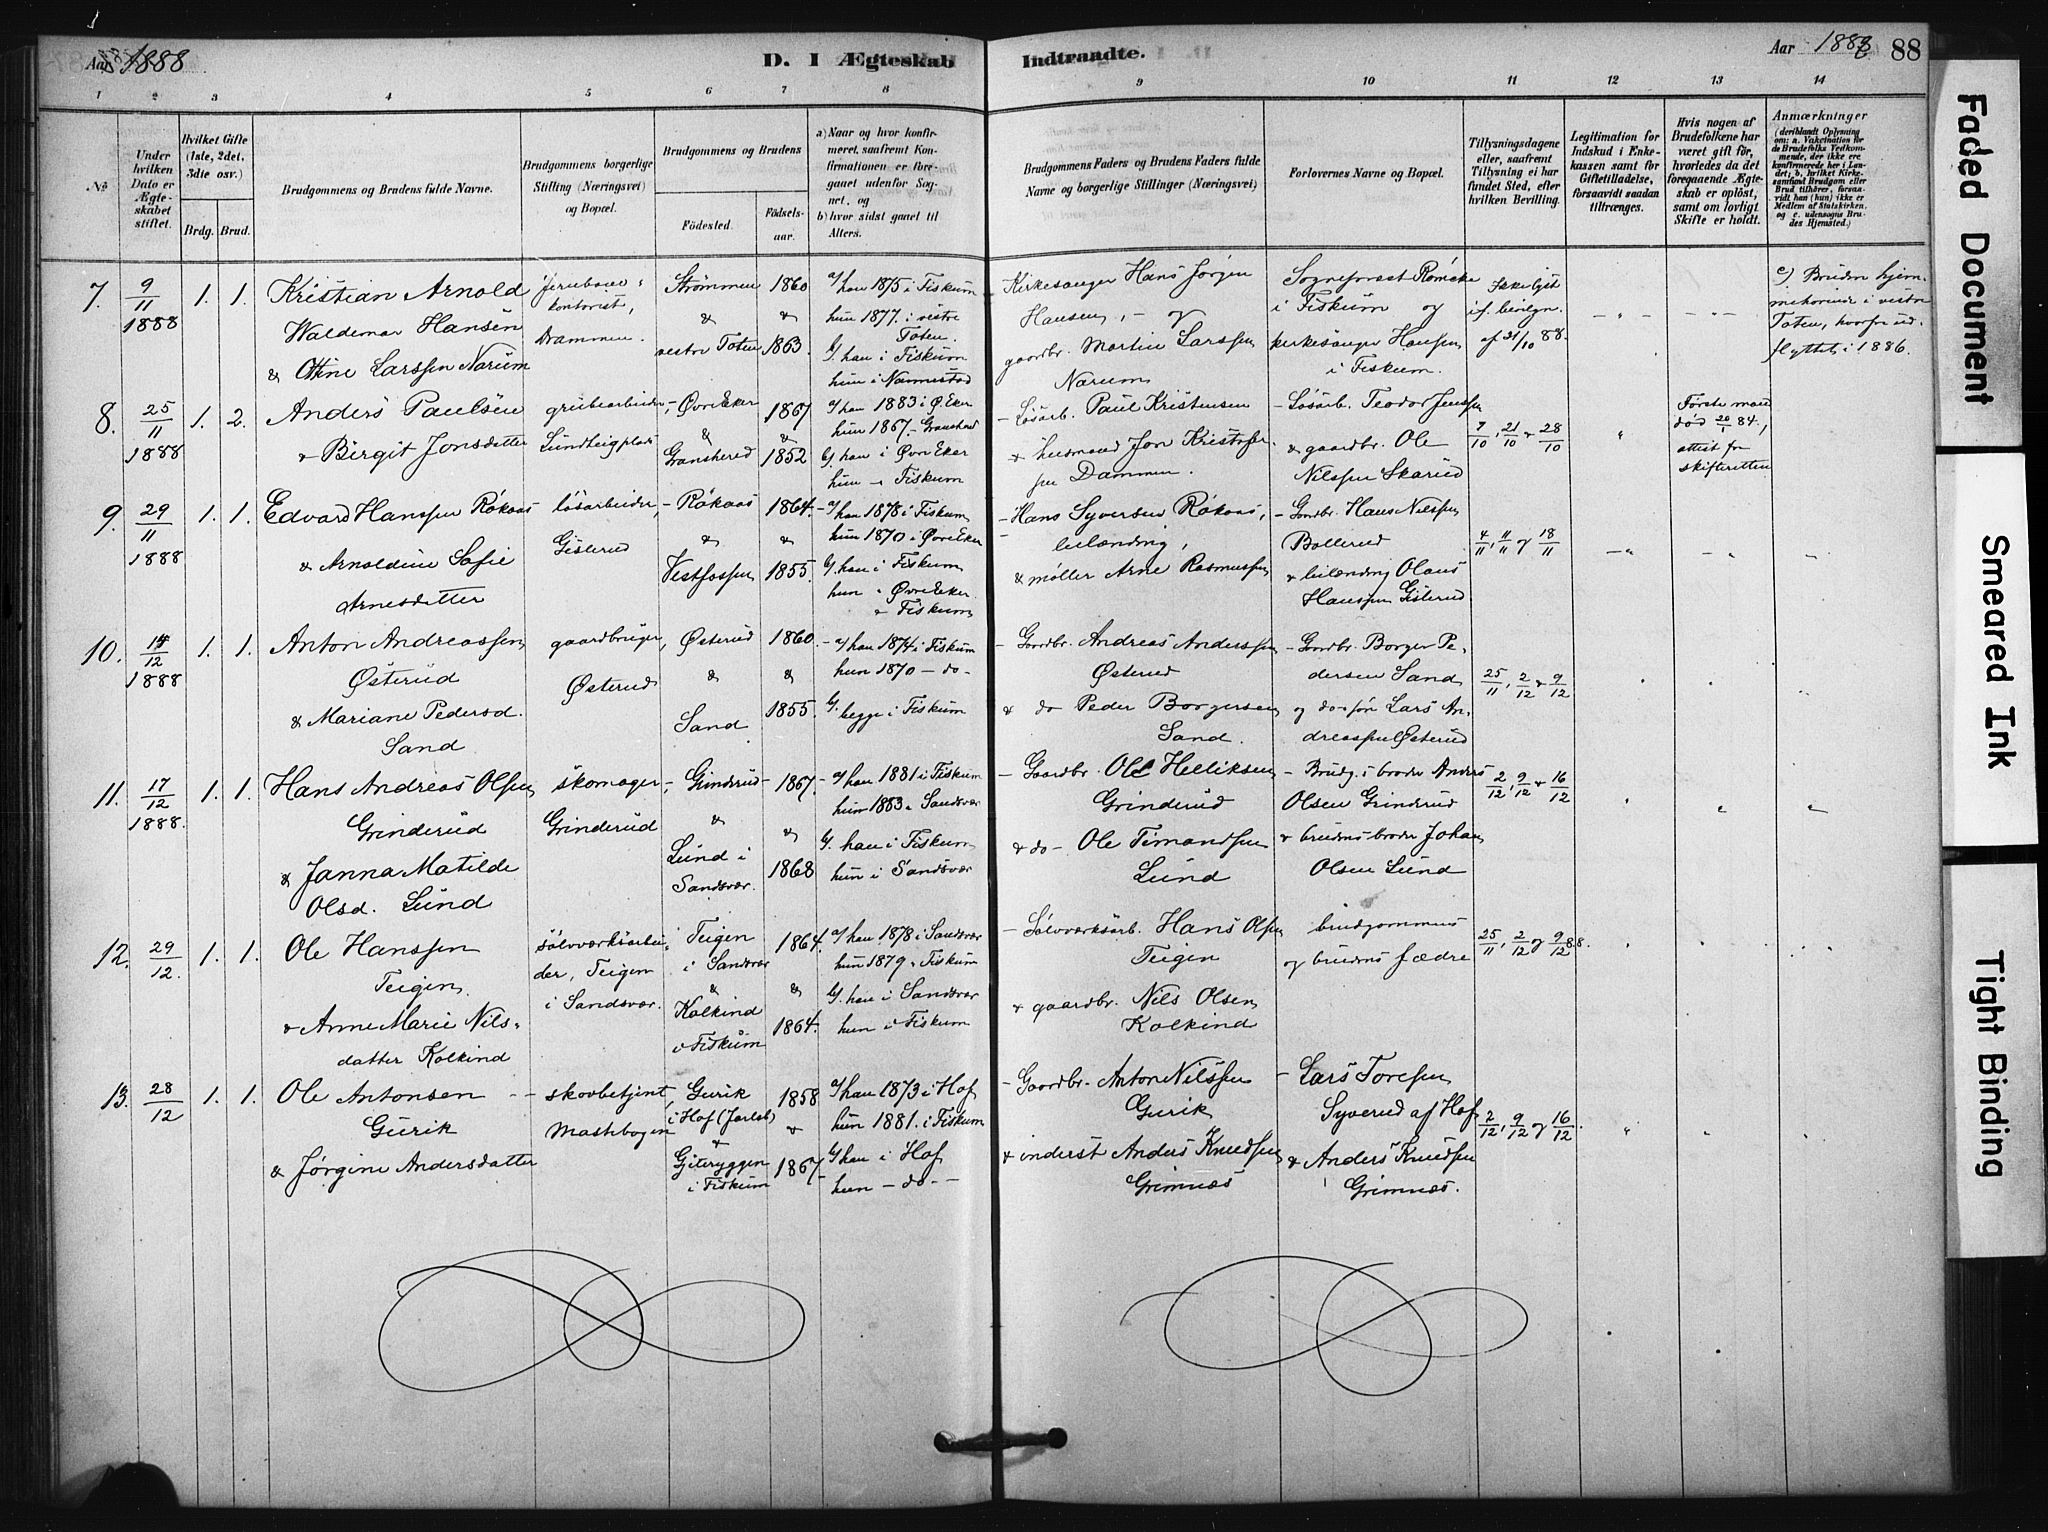 Aar 1888
D. I Ægteskab Indtraadte.
Aar 1888
88
1 2 3 4 5 6 7 8 9 10 11 12 13 14
No
Under hvilken Dato er Ægteskabet stiftet.
Hvilket Gifte (1ste, 2det, 3die osv.)
Brdg. Brud.
Brudgommens og Brudens fulde Navne.
Brudgommens borgerlige Stilling (Næringsvei) og Bopæl.
Brudgommens og Brudens
Fødested.
Fødselsaar.
a) Naar og hvor konfirmeret, saafremt Konfirmationen er foregaaet udenfor Sognet, og
b) hvor sidst gaaet til Alters.
Brudgommens Faders og Brudens Faders fulde Navne og borgerlige Stillinger (Næringsvei)
Forlovernes Navne og Bopæl.
Tillysningsdagene eller, saafremt Tillysning ei har fundet Sted, efter hvilken Bevilling.
Legitimation for Indskud i Enkekassen samt for Giftetilladelse, forsaavidt saadan tiltrænges.
Hvis nogen af Brudefolkene har været gift før, hvorledes da det foregaaende Ægteskab er opløst, samt om lovligt Skifte er holdt.
Anmærkninger
(deriblandt Oplysning om: a. Vakcination for de Brudefolks Vedkommende, der ikke ere konfirmerede her i Landet; b. hvilket Kirkesamfund Brudgom eller Brud tilhører, forsaavidt han (hun) ikke er Medlem af Statskirken, og c. udensogns Brudes Hjemsted.)
7. 9/11 1888 1. 1.
Kristian Arnold
Waldemar Hansen
& Ottine Larssen Narum
Jernbane-
kontorist,
Drammen.
Strømmen
&
vestre Toten
1860
&
1863.
a/ han 1875 i Fiskum
hun 1877. i vestre
Toten.
b/. han i Fiskum
hun i Nannestad
Kirkesanger Hans Jørgen
Hansen, - og
gaardbr. Martin Larssen
Narum
Sogneprest Römcke
i Fiskum og
kirkesanger Hansen
i Fiskum.
Ikke lyst
if. bevilgn.
af 31/10 88.
- „ -
- „ -
c/ Bruden hjem-
mehörende i vestre
Toten, hvorfra ud-
flyttet i 1886.
8. 25/11 1888 1. 2.
Anders Paulsen
& Birgit Jonsdatter
grubearbeider,
Sundheigplads
Øvre Eker
&
Gransherred
1867
&
1852
a/ han 1883 i Ø. Eker
hun 1867 - Gransherad
b/. han i Øvre Eker
hun - Fiskum
- Løsarb. Paul Kristensen
& husmand Jon Kristofer-
sen Dammen.
- Løsarb. Teodor Jenssen
& gaardbr. Ole
Nilssen Skarud
7/10, 21/10 & 28/10
„
Første mand
død 20/1 84.,
attest fra
skifteretten
9. 29/11 1888 1. 1.
Edvard Hanssen Rökaas
& Arnoldine Sofie
Arnesdatter
løsarbeider,
Gislerud
- Rökaas
&
Vestfossen
1864.
&
1855.
- a/ han 1878 i Fiskum
hun 1870 i Øvre Eker
b/. han i Fiskum,
hun i Øvre Eker
& Fiskum
- Hans Syversen Rökaas,
leilænding,
& møller Arne Rasmussen
- Gaardbr. Hans Nilssen
Bollerud
& leilænding Olaus
Hanssen Gislerud
4/11, 11/11 og 18/11
- „
- „
„
10. 14/12 1888 1. 1.
Anton Andreassen
Østerud
& Mariane Pedersd.
Sand
gaardbruger,
Østerud
Østerud
&
Sand
1860
&
1855.
- a/ han 1874 i Fiskum
hun 1870 - do -
b/. begge i Fiskum
- Gaardbr. Andreas Anderssen
Østerud
& do Peder Borgersen
Sand.
- Gaardbr. Borger Pe-
dersen Sand
og do-søn Lars An-
dreassen Østerud
25/11, 2/12 & 9/12
„ „ „
11. 17/12 1888. 1. 1.
Hans Andreas Olsen
Grinderud
& Janna Matilde
Olsd. Lund
skomager,
Grinderud
- Grinderud
&
Lund i
Sandsvær.
1867.
&
1868
- a/ han 1881 i Fiskum
hun 1883 „ Sandsvær
b/. han i Fiskum
hun i Sandsvær
- Gaardbr. Ole Helliksen
Grinderud
& do - Ole Timandsen
Lund
- Brudg.s broder Anders
Olsen Grinderud
& brudens broder Johan
Olsen Lund
2/12, 9/12 & 16/12
„ „ „
12. 29/12. 1. 1.
Ole Hanssen
Teigen.
& Anne Marie Nils-
datter Kolkind
sølvværksarbei-
der, Teigen
i Sandsvær.
Teigen
i Sandsvær
&
Kolkind
i Fiskum
1864.
&
1864.
a/ han 1878 i Sandsvær
hun 1879 „ Fiskum
b/. han i Sandsvær
hun i Fiskum
- Sølvværksarb. Hans Olsen
Teigen
& gaardbr. Nils Olsen
Kolkind
brudgommens
og brudens fædre
25/11, 2/12 og 9/12 88.
„ „ „
13. 28/12 1. 1.
Ole Antonsen
Gurik
& Jørgine Andersdatter
skovbetjent,
Mastebogen
Gurik
i Hof (Jarlsb)
&
Gjiteryggen
i Fiskum
1858
&
1867
a/ han 1873 i Hof
hun 1881. i Fiskum
b/ han i Hof
hun - do - -
- Gaardbr. Anton Nilssen
Gurik
& inderst Anders Knudsen
Grimnæs
- Lars Toresen
Syverud af Hof
& Anders Knudsen
Grimnæs.
2/12, 9/12 og 16/12.
„ „ „
Faded Document
Smeared Ink
Tight Binding